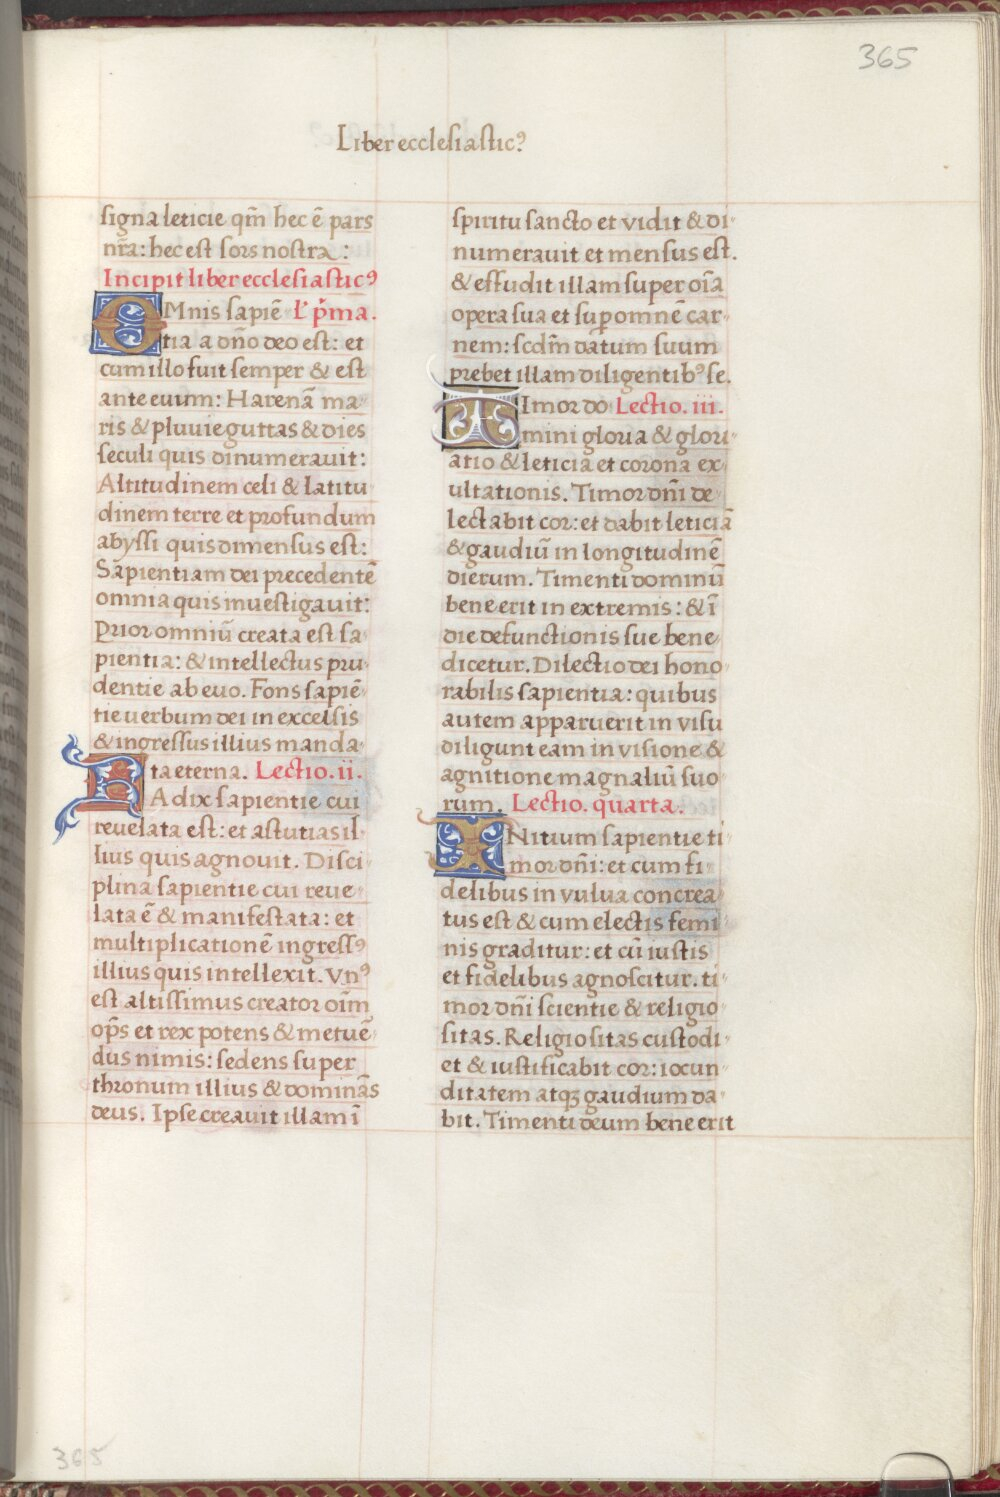 365
Liber ecclesiastic⁹
signa leticie qm̄ hec ē pars
nr̄a: hec est sors nostra:
Incipit liber ecclesiastic⁹
OMnis sapiē Lͨ p̄ma.
tia a dn̄o deo est: et
cum illo fuit semper & est
ante euum: Harenā ma
ris & pluuie guttas & dies
seculi quis dinumerauit:
Altitudinem celi & latitu
dinem terre et profundum
abyssi quis dimensus est:
Sapientiam dei precedentē
omnia quis inuestigauit:
Prior omniū creata est sa
pientia: & intellectus pru
dentie ab euo. Fons sapiē
tie uerbum dei in excelsis
& ingressus illius manda
ta eterna. Lectio. ii.
RAdix sapientie cui
reuelata est: et astutias il
lius quis agnouit. Disci
plina sapientie cui reue
lata ē & manifestata: et
multiplicationē ingress⁹
illius quis intellexit. Vn⁹
est altissimus creator oīm
op̄s et rex potens & metuē
dus nimis: sedens super
thronum illius & dominās
deus. Ipse creauit illam ī
spiritu sancto et vidit & di
numerauit et mensus est.
& effudit illam super oīa
opera sua et sup̱ omnē car
nem: scdm̄ datum suum
prebet illam diligentib⁹ se.
TImor do Lectio. iii.
mini gloria & glori
atio & leticia et corona ex
ultationis. Timor dn̄i de
lectabit cor: et dabit leticiā
& gaudiū in longitudinē
dierum. Timenti dominū
bene erit in extremis: & ī
die defunctionis sue bene
dicetur. Dilectio dei hono
rabilis sapientia: quibus
autem apparuerit in visu
diligunt eam in visione &
agnitione magnaliū suo
rum. Lectio. quarta.
INitium sapientie ti
mor dn̄i: et cum fi
delibus in vulua concrea
tus est & cum electis femi
nis graditur: et cū iustis
et fidelibus agnoscitur. ti
mor dn̄i scientie & religio
sitas. Religiositas custodi
et & iustificabit cor: iocun
ditatem atqꝫ gaudium da
bit. Timenti deum bene erit
365